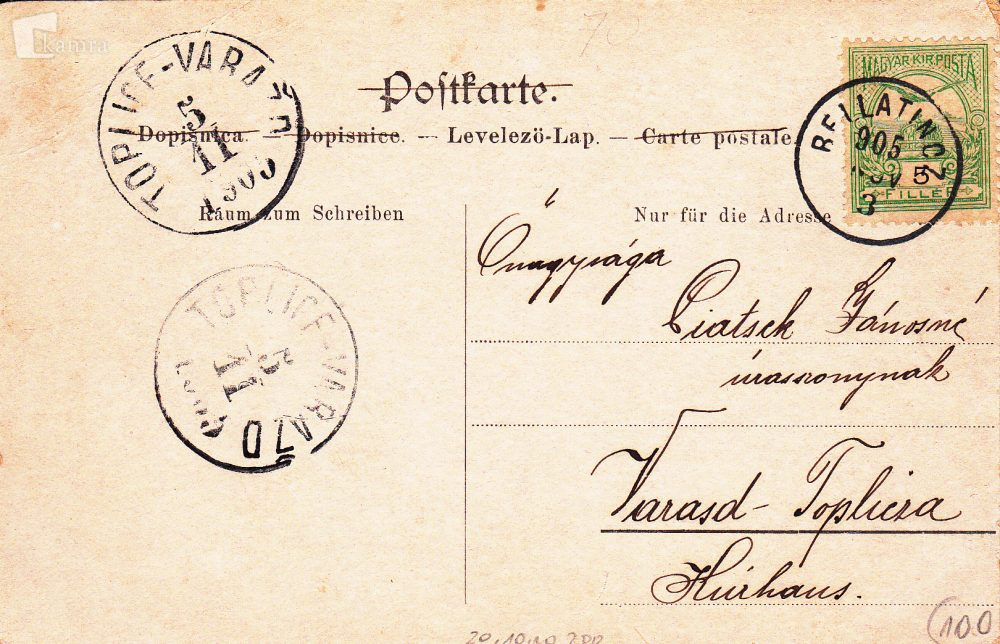 kamra
TOPLICE-VARAŽD
5
11
1905
Postkarte.
Dopisnica. — Dopisnice. — Levelezö-Lap. — Carte postale.
Raum zum Schreiben
Nur für die Adresse
MAGYAR KIR. POSTA
5
FILLÉR
BELLATINCZ
905
NOV
3
Önagysága
Piatsek Jánosné
úrasszonynak
Varasd-Toplicza
Kúrhaus.
TOPLICE-VARAŽD
5
11
(100